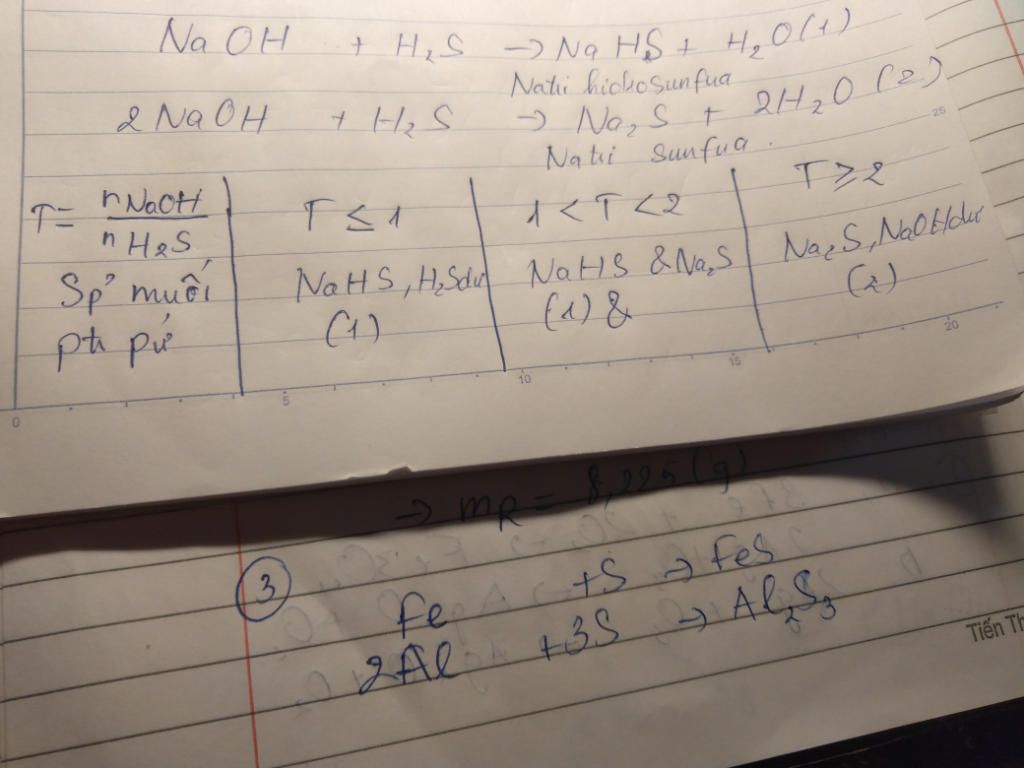 NaOH + H₂S → NaHS + H₂O (1)
Natri hidrosunfua
2NaOH + H₂S → Na₂S + 2H₂O (2)
Natri sunfua.
T = nNaOH / nH₂S | T ≤ 1 | 1 < T < 2 | T ≥ 2
Sp' muối | NaHS, H₂S dư | NaHS & Na₂S | Na₂S, NaOH dư
pt pứ | (1) | (1) & | (2)
0 5 10 15 20
25
→ mR = 8,225 (g)
③ Fe + S → FeS
2Al + 3S → Al₂S₃
Tiến Th